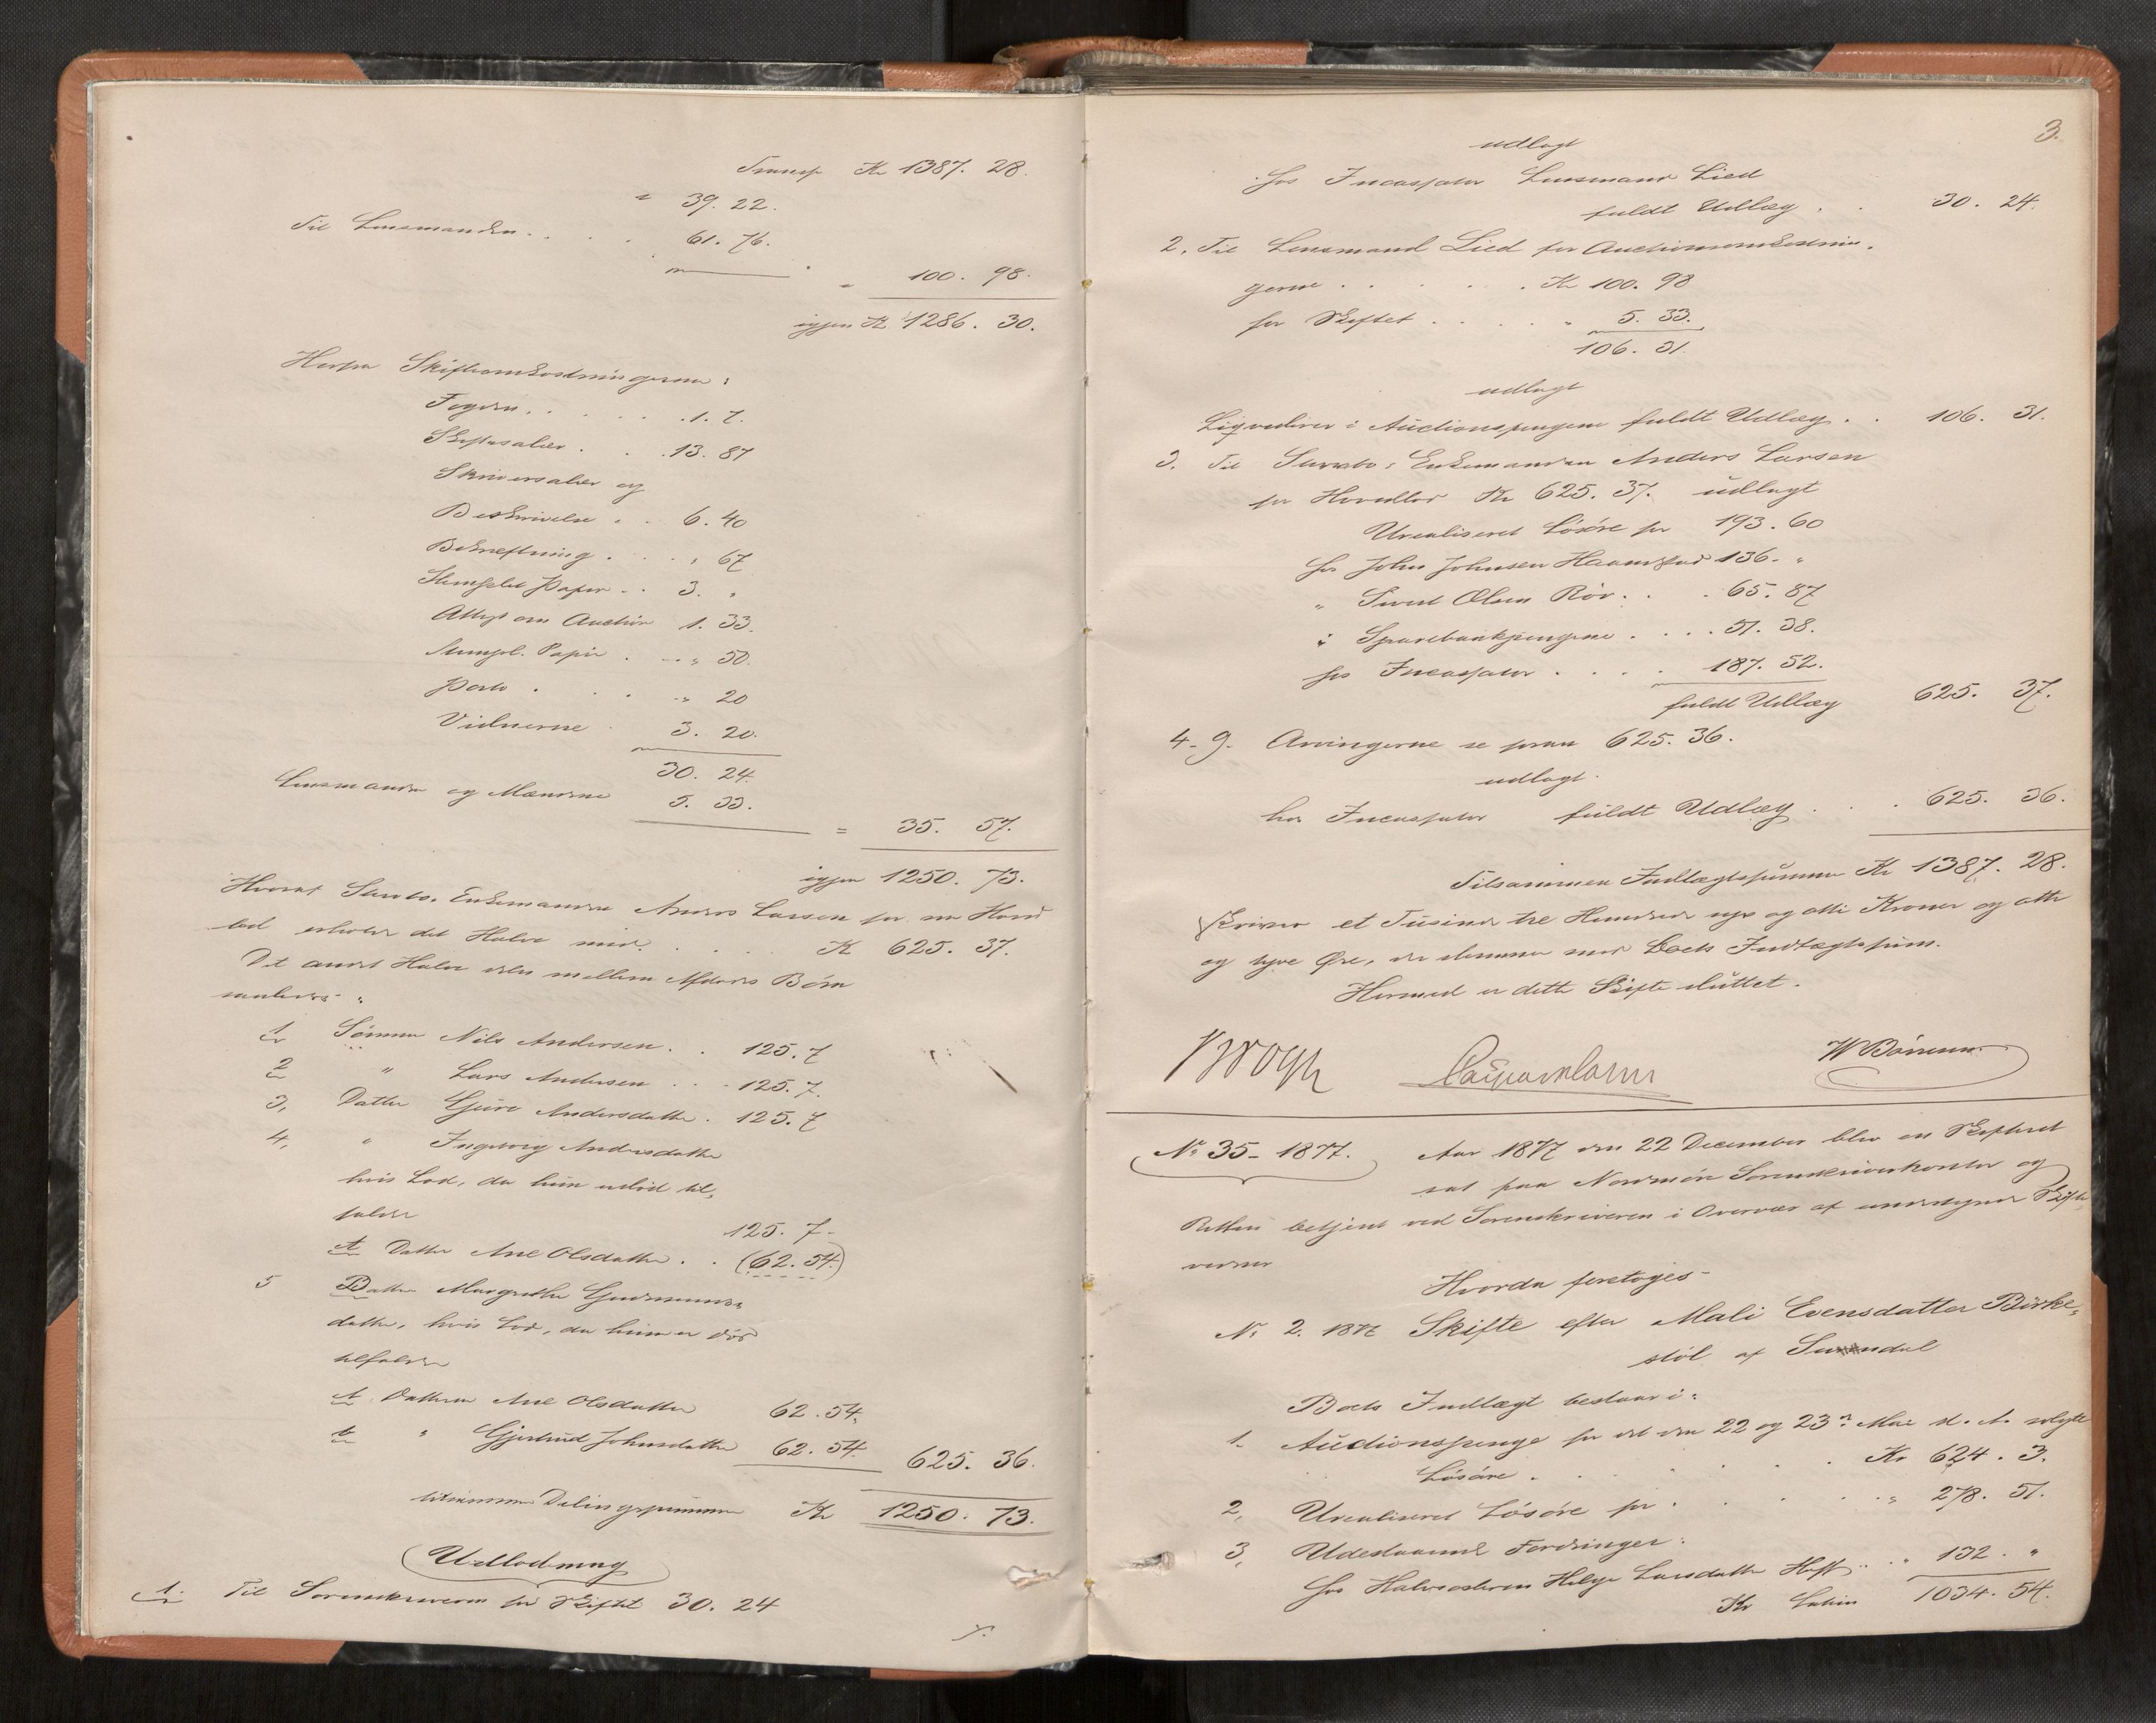 Transp Kr 1387. 28.
" 39. 22.
Til Lensmanden . . . 61. 76.
" 100. 98.
igjen Kr 1286. 30.
Herfra Skifteomkostningerne:
Fogden . . . . 1. 7.
Skiftesalær . . 13. 87
Skriversalær og
Beskrivelse . . 6. 40
Bekræftning . . . " 67
Stemplet Papir . . 3. "
Attest om Auction 1. 33.
Stempl. Papir . . . " 50.
Porto . . . . " 20
Vidnerne 3. 20.
30. 24.
Lensmanden og Mændene 5. 33.
= 35. 57.
igjen 1250. 73.
Hvoraf Enkemanden Anders Larsen for sin Hoved
lod erholder det Halve med . . . Kr 625. 37.
Det andet Halve deles mellem Afdødes Børn
saaledes:
1 Sønnen Nils Andersen . . 125. 7
2 " Lars Andersen . . 125. 7.
3, Datter Guro Andersdatter . 125. 7
4, " Ingeborg Andersdatter
hvis Lod, da hun er død til,
falder 125. 7-
A Datter Ane Olsdatter . . (62. 54.)
5 Datter Margrethe Gudmunds-
datter, hvis Lod, da hun er død
tilfalder
A. Datteren Ane Olsdatter 62. 54.
b " Gjertrud Johnsdatter 62. 54. 625. 36.
tilsammen Delingssummen Kr 1250. 73.
Udlodning
1. Til Sorenskriveren for Skiftet 30. 24
3.
udlagt
hos Incassator Lensmand Lied
fuldt Udlæg . . 30. 24.
2. Til Lensmand Lied for Auctionsomkostnin-
gerne . . . . . Kr 100. 98
for Skiftet . . . . " 5. 33.
106. 31.
udlagt
Liqviderer i Auctionspengene fuldt Udlæg . . 106. 31.
3. Til Enkemanden Anders Larsen
for Hovedlod Kr 625. 37. udlagt
Urealiseret Løsøre for 193. 60
hos John Johnsen Haanstad 136. "
" Sivert Olsen Røv . . . 65. 87
i Sparebankpengene . . . . 51. 38.
hos Incassator . . . . 187. 52.
fuldt Udlæg 625. 37.
4-9. Arvingerne se foran 625. 36.
udlagt
hos Incassator fuldt Udlæg . . . 625. 36.
Tilsammen Indtægtssummen Kr 1387. 28.
skriver et Tusind tre Hundrede syv og otti Kroner og otte
og tyve Øre, der stemmer med Boets Indtægtssum.
Hermed er dette Skifte sluttet.
Krogh
No 35- 1877. Aar 1877 den 22 December blev en Skifteret
sat paa Nordmøre Sorenskriverkontor og
Retten betjent ved Sorenskriveren i Overvær af undertegnede Skifte-
vidner
Hvorda foretoges
No 2. 1877 Skifte efter Mali Evensdatter Birke-
støl af Surendal
Boets Indtægt bestaar i:
1. Auctionspenge for det den 22 og 23de Mai d. A. solgte
Løsøre . . . . . . . Kr 624. 3.
2, Urealiseret Løsøre for . . . . . " 278. 51.
3, Udestaaende Fordringer:
hos Halvsøsteren Helge Larsdatter Hoft . . " 132. "
Kr Latus 1034. 54.